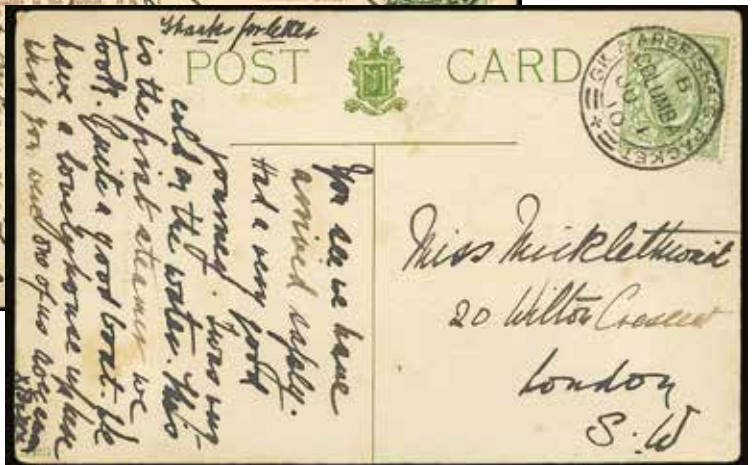 Thanks for letter
POST CARD
GK & ARDRISHAIG PACKET
COLUMBA
B
JU 1
10
You see we have
arrived safely.
Had a very good
journey. It was very
cold on the water. This
is the first steamer we
took. Quite a good boat. We
have a lovely house up here
wish you were one of us
Miss Micklethwait
20 Wilton Crescent
London
S.W